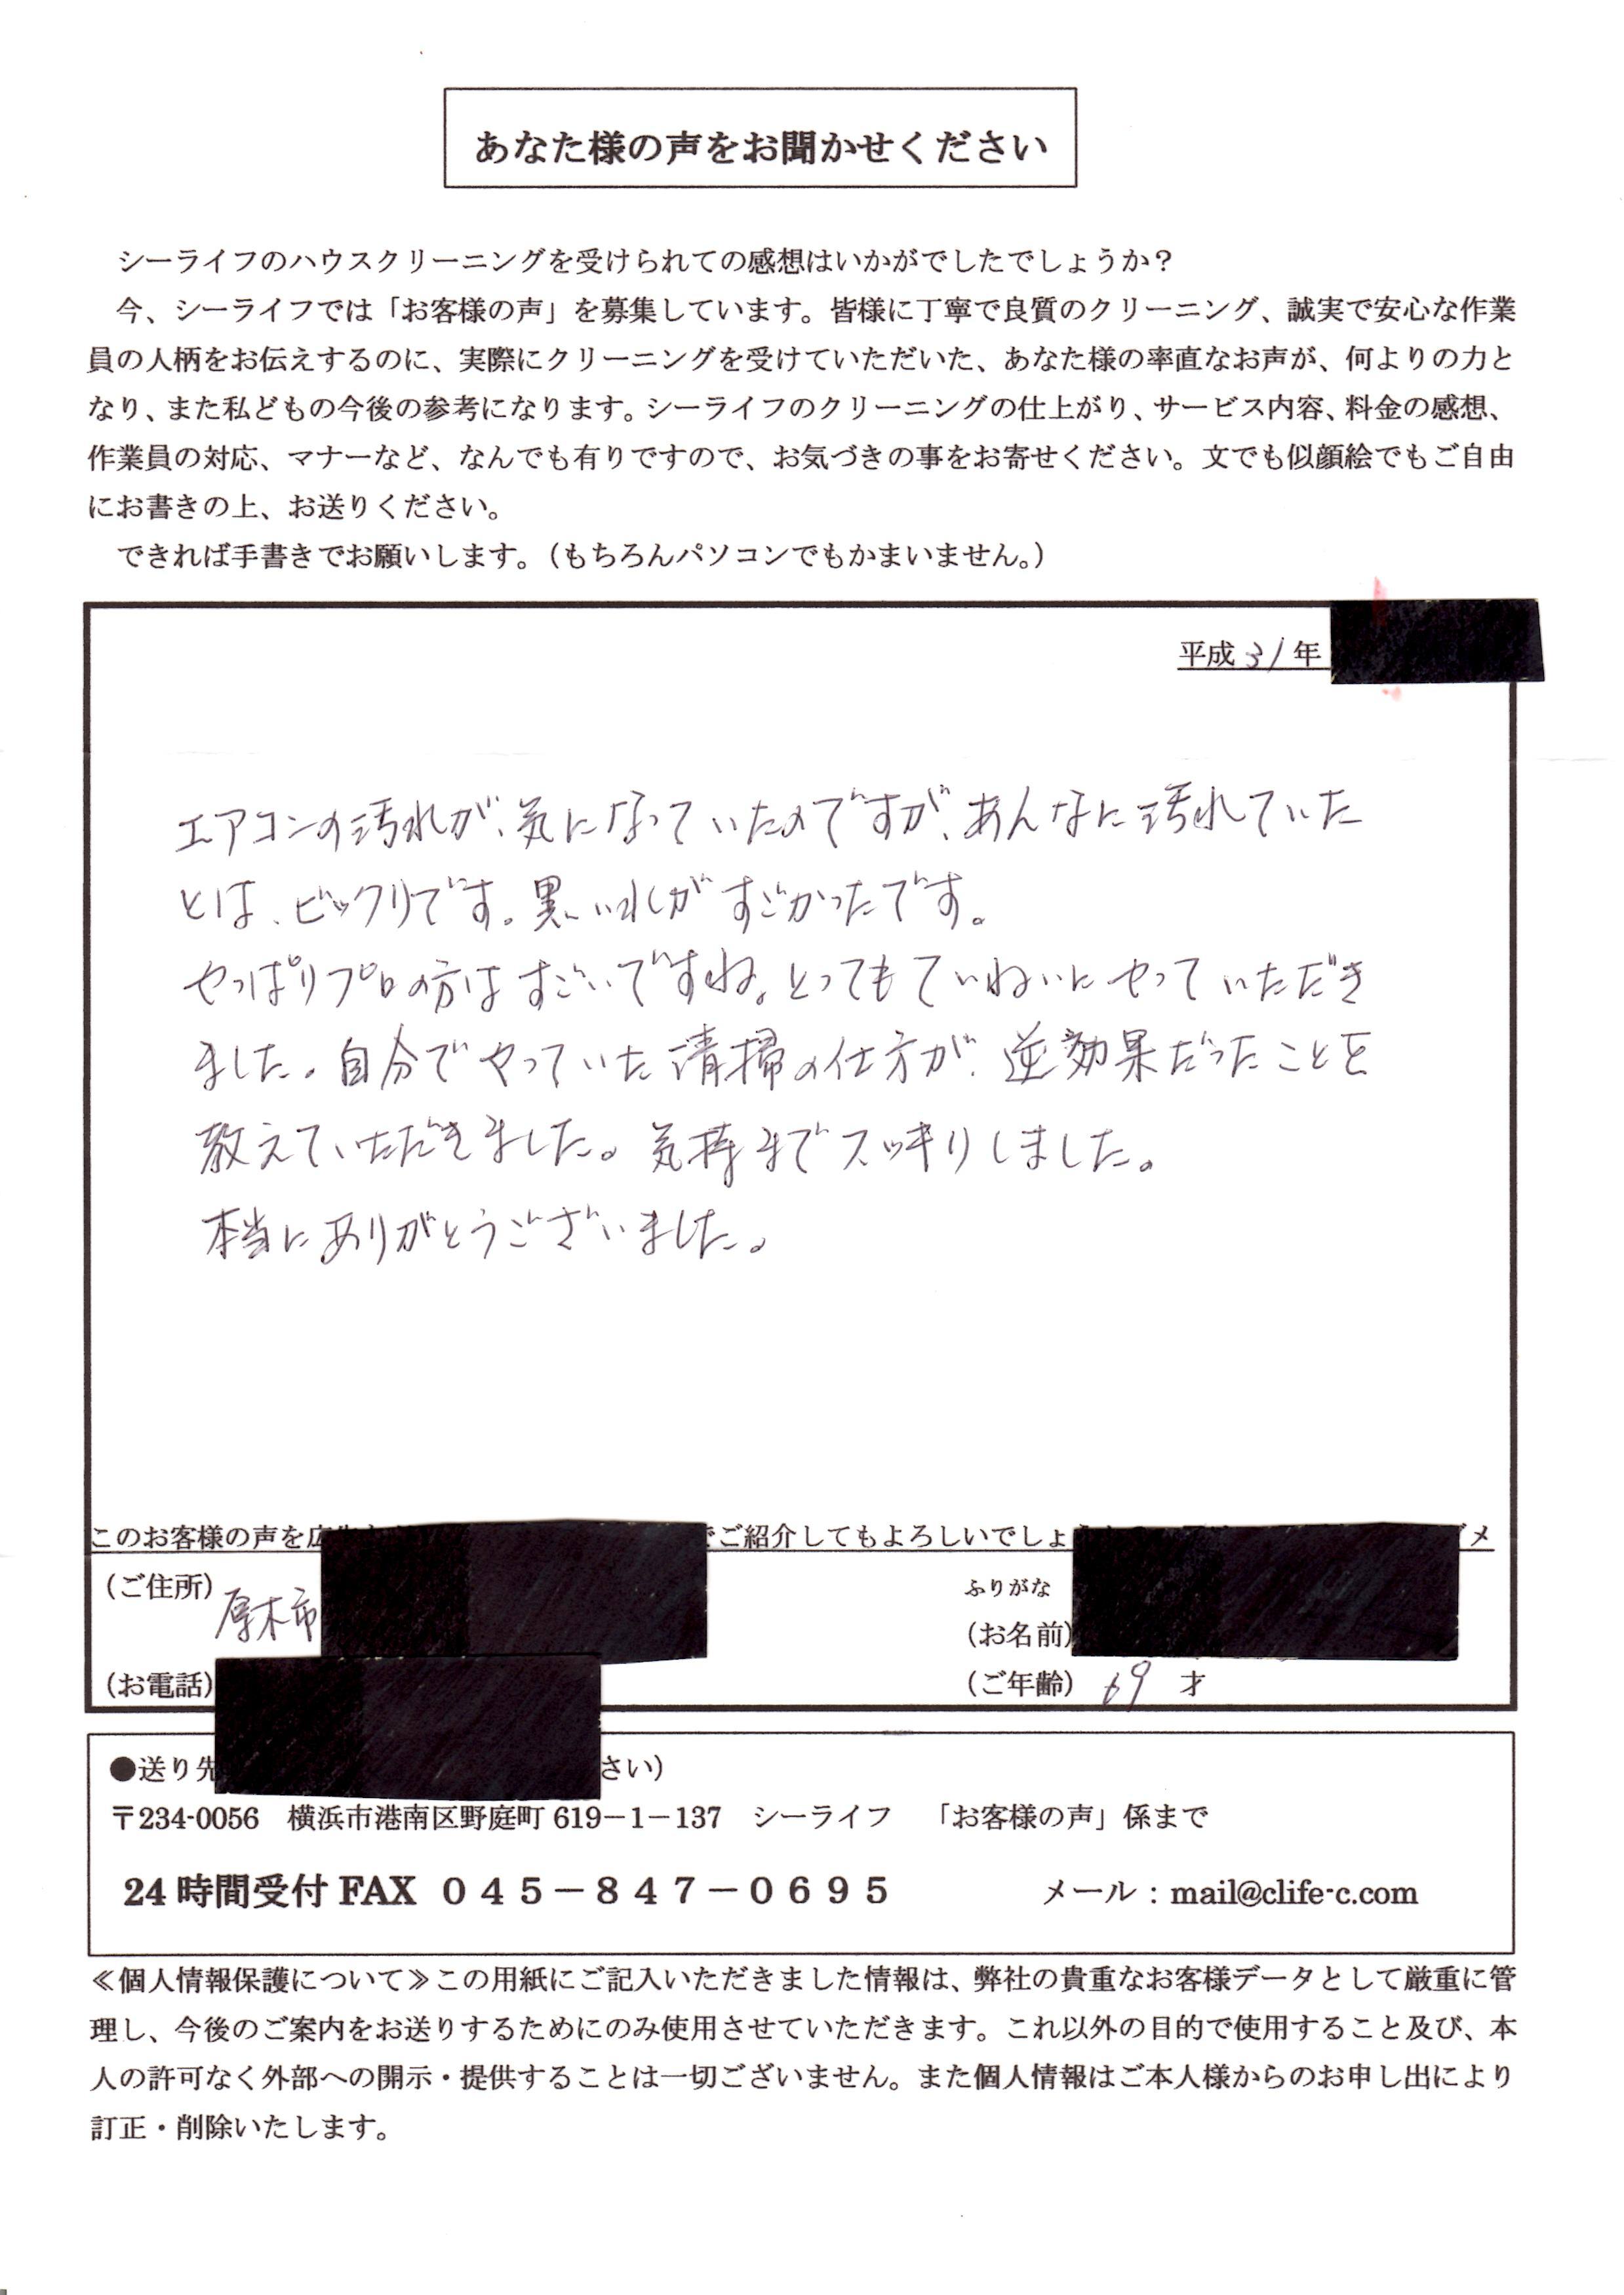 あなた様の声をお聞かせください
シーライフのハウスクリーニングを受けられての感想はいかがでしたでしょうか？
今、シーライフでは「お客様の声」を募集しています。皆様に丁寧で良質のクリーニング、誠実で安心な作業
員の人柄をお伝えするのに、実際にクリーニングを受けていただいた、あなた様の率直なお声が、何よりの力と
なり、また私どもの今後の参考になります。シーライフのクリーニングの仕上がり、サービス内容、料金の感想、
作業員の対応、マナーなど、なんでも有りですので、お気づきの事をお寄せください。文でも似顔絵でもご自由
にお書きの上、お送りください。
できれば手書きでお願いします。（もちろんパソコンでもかまいません。）
平成31年
エアコンの汚れが、気になっていたのですが、あんなに汚れていた
とは、ビックリです。黒い水がすごかったです。
やっぱりプロの方はすごいですね。とってもていねいにやっていただき
ました。自分でやっていた清掃の仕方が、逆効果だったことを
教えていただきました。気持までスッキリしました。
本当にありがとうございました。
このお客様の声を広 でご紹介してもよろしいでしょ メ
（ご住所） 厚木市 ふりがな
（お名前）
（お電話） （ご年齢） 69 才
●送り先 さい）
〒234-0056 横浜市港南区野庭町 619－1－137 シーライフ 「お客様の声」係まで
24 時間受付 FAX ０４５－８４７－０６９５ メール：mail@clife-c.com
≪個人情報保護について≫この用紙にご記入いただきました情報は、弊社の貴重なお客様データとして厳重に管
理し、今後のご案内をお送りするためにのみ使用させていただきます。これ以外の目的で使用すること及び、本
人の許可なく外部への開示・提供することは一切ございません。また個人情報はご本人様からのお申し出により
訂正・削除いたします。